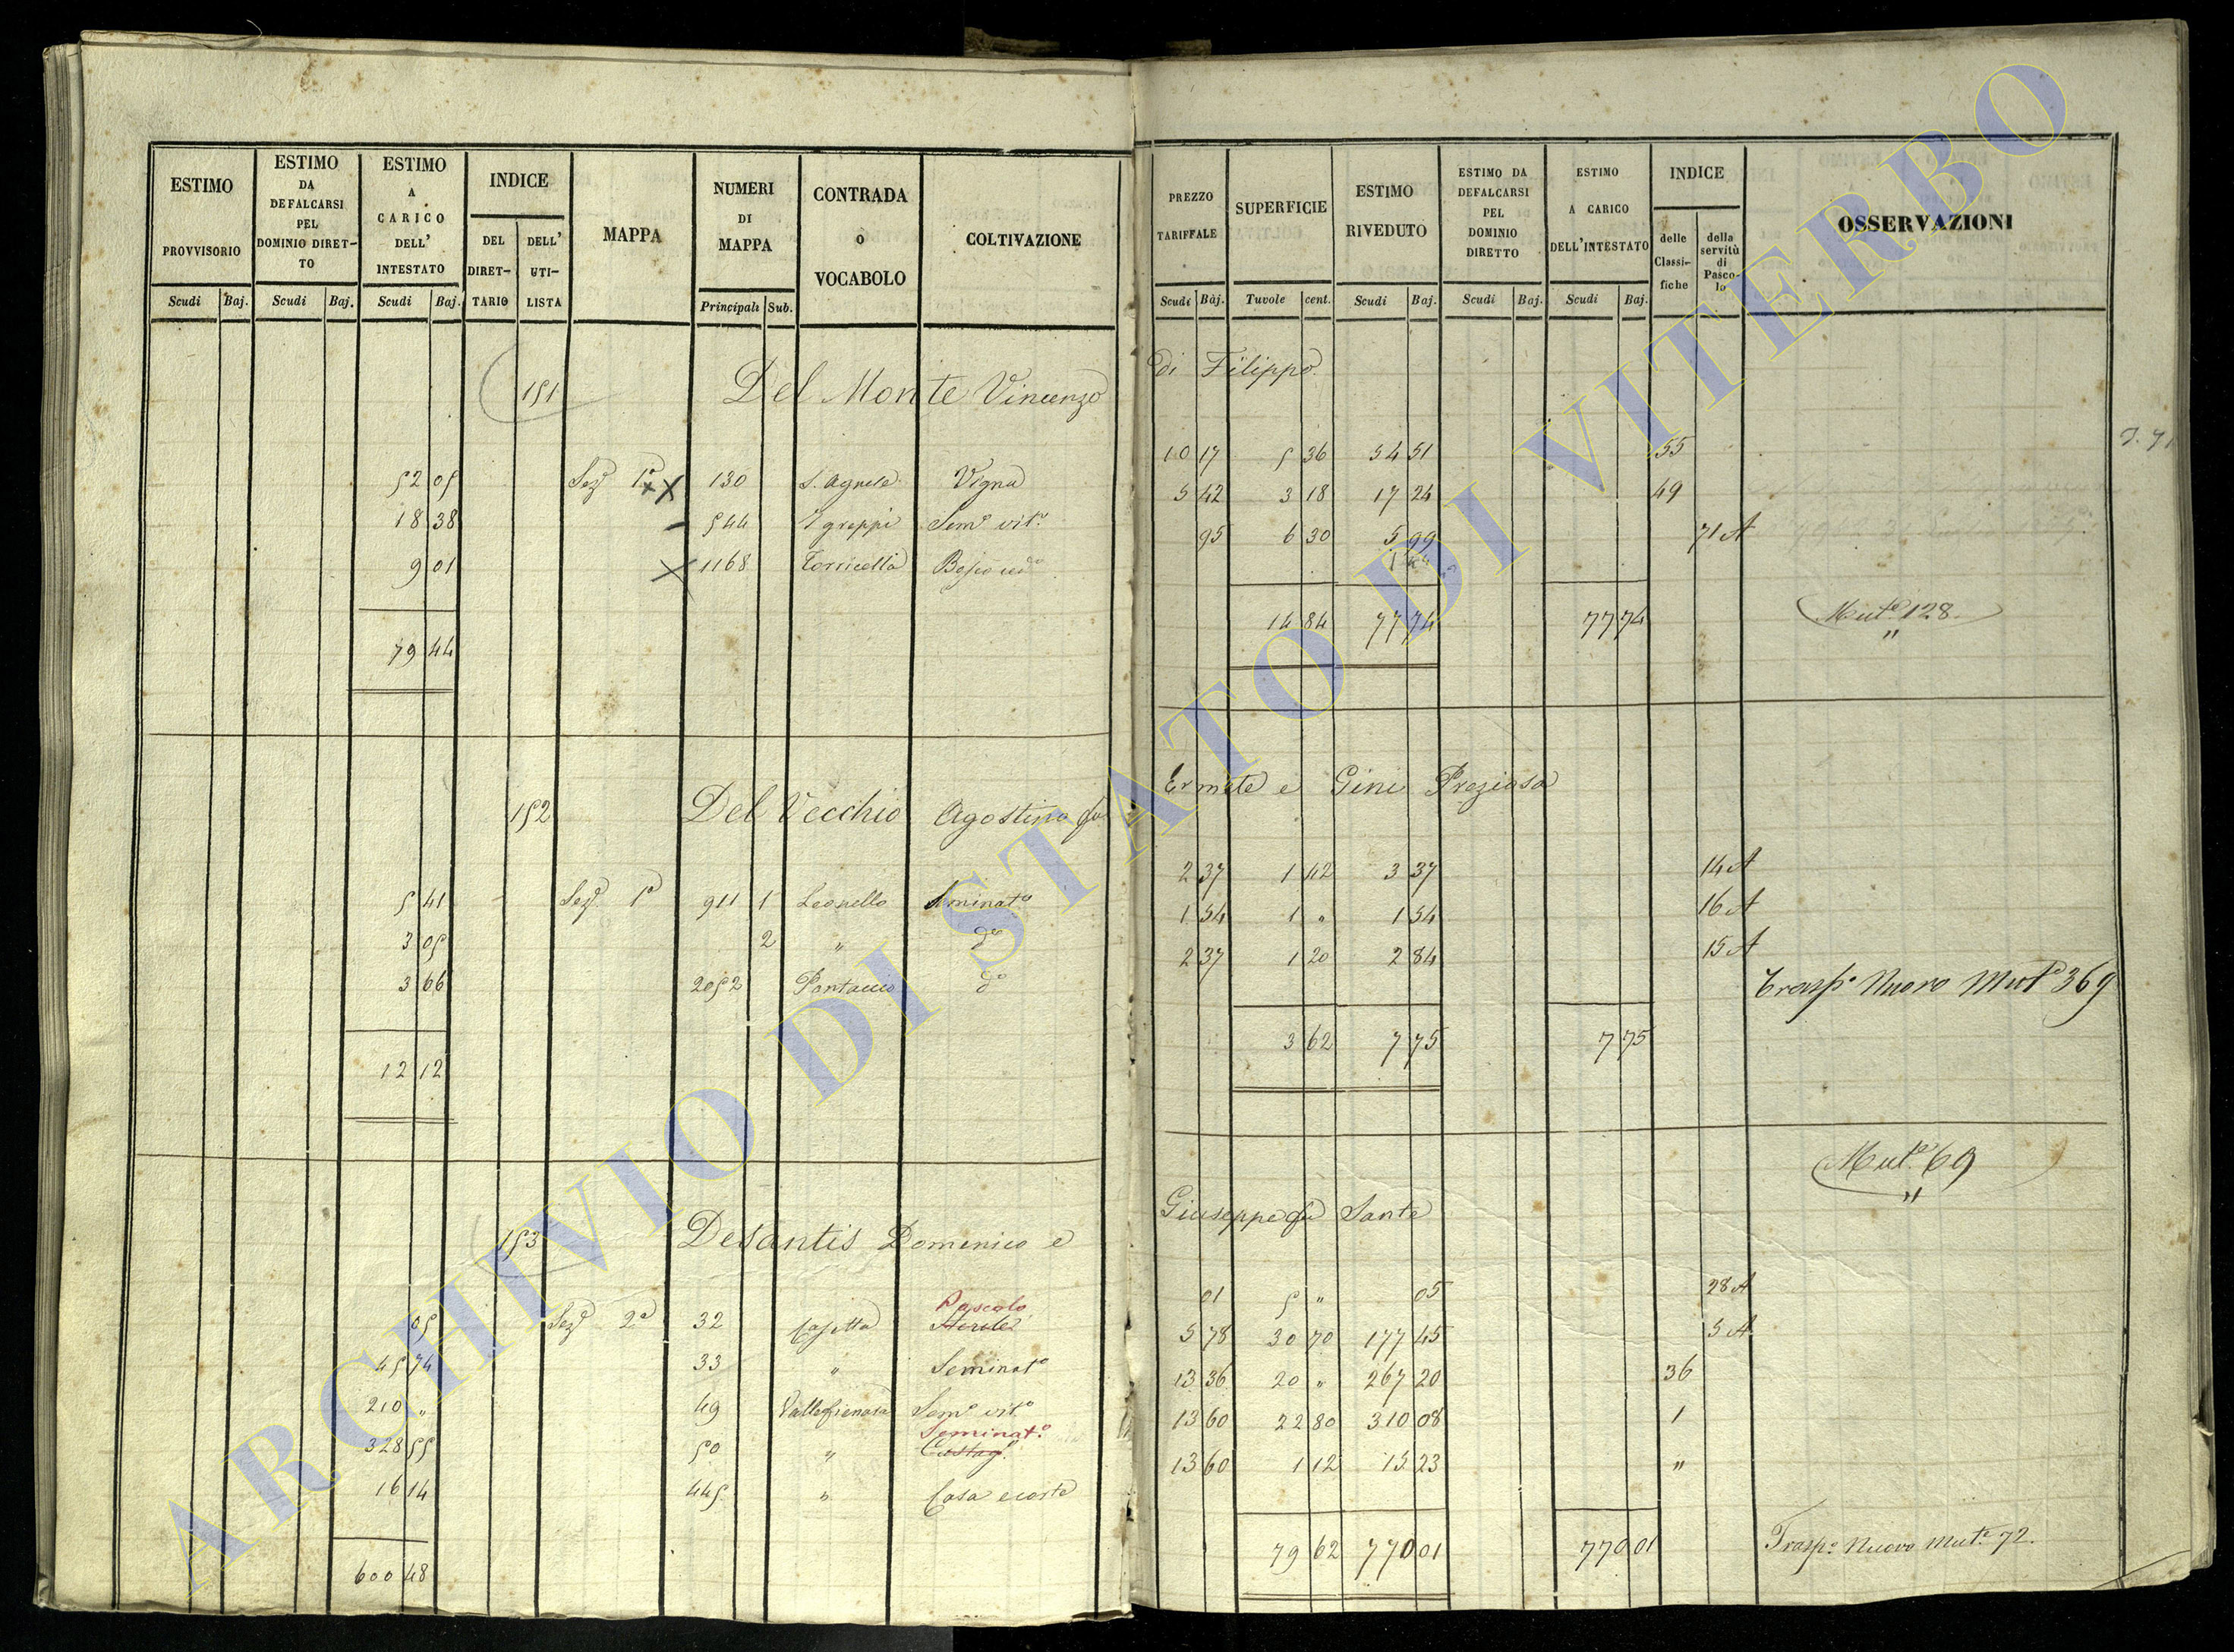 ESTIMO PROVVISORIO Scudi Baj.
ESTIMO DA DEFALCARSI PEL DOMINIO DIRET-TO Scudi Baj.
ESTIMO A CARICO DELL' INTESTATO Scudi Baj.
INDICE DEL DIRET-TARIO DELL' UTI-LISTA
MAPPA
NUMERI DI MAPPA Principali Sub.
CONTRADA o VOCABOLO
COLTIVAZIONE
151 Del Monte Vincenzo
52 05 Sez.e 1a 130 S. Agnese Vigna
18 38 544 Sem.o vit.o
9 01 1168 Torricella Bosco ced.o
79 44
152 Del Vecchio Agostino fu
5 41 Sez.e 1a 911 1 Leonello Seminat.o
3 05 2 " d.o
3 66 2052 Pantaccio d.o
12 12
153 Desantis Domenico e
Pascolo
05 Sez.e 2a 32 Casetta Sterile
45 74 33 " Seminat.o
210 " 49 Vallefienosa Sem.o vit.o
Seminat.o
328 55 50 " Castag.o
16 14 445 " Casa e corte
600 48
PREZZO TARIFFALE Scudi Baj.
SUPERFICIE Tavole cent.
ESTIMO RIVEDUTO Scudi Baj.
ESTIMO DA DEFALCARSI PEL DOMINIO DIRETTO Scudi Baj.
ESTIMO A CARICO DELL'INTESTATO Scudi Baj.
INDICE delle Classi-fiche della servitù di Pasco-lo
OSSERVAZIONI
di Filippo
10 17 5 36 54 51 55
5 42 3 18 17 24 49
95 6 30 5 99 71 A
14 84 77 74 77 74 Mut.e 128
"
Ermete e Gini Preziosa
2 37 1 42 3 37 14 A
1 54 1 " 1 54 16 A
2 37 1 20 2 84 15 A
Trasp.o Nuovo Mut.e 369
3 62 7 75 7 75
Mut.e 69
"
Giuseppe fu Sante
01 5 " 05 28 A
5 78 30 70 177 45 5 A
13 36 20 " 267 20 36
13 60 22 80 310 08 1
13 60 1 12 15 23 "
79 62 770 01 770 01 Trasp.o Nuovo Mut.e 72.
ARCHIVIO DI STATO DI VITERBO